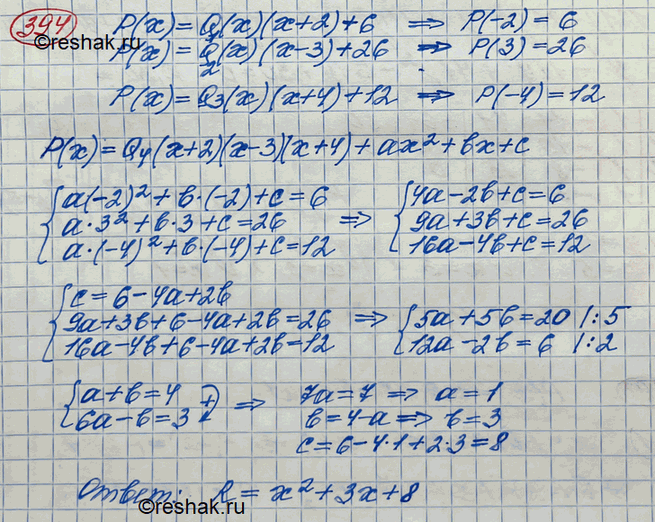 394 P(x) = Q₁(x)(x+2)+6 ⇒ P(-2) = 6
©reshak.ru
P(x) = Q₂(x)(x-3)+26 ⇒ P(3) = 26
P(x) = Q₃(x)(x+4)+12 ⇒ P(-4) = 12
P(x) = Q₄(x+2)(x-3)(x+4)+ax²+bx+c
{a(-2)²+b·(-2)+c=6 ⇒ {4a-2b+c=6
a·3²+b·3+c=26 9a+3b+c=26
a·(-4)²+b·(-4)+c=12 16a-4b+c=12
{c=6-4a+2b
9a+3b+6-4a+2b=26 ⇒ {5a+5b=20 |:5
16a-4b+6-4a+2b=12 12a-2b=6 |:2
{a+b=4 + ⇒ 7a=7 ⇒ a=1
6a-b=3 b=4-a ⇒ b=3
c=6-4·1+2·3=8
Ответ: R = x²+3x+8
©reshak.ru